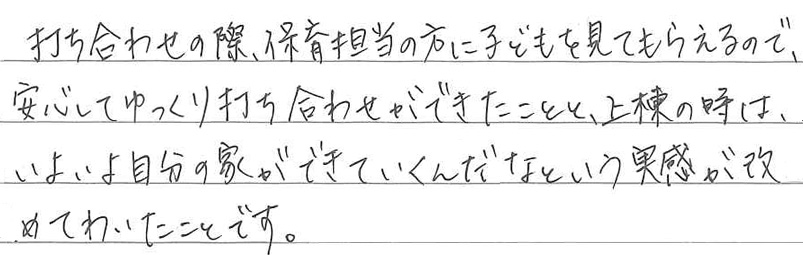 打ち合わせの際、保育担当の方に子どもを見てもらえるので、
安心してゆっくり打ち合わせができたことと、上棟の時は、
いよいよ自分の家ができていくんだなという実感が改
めてわいたことです。